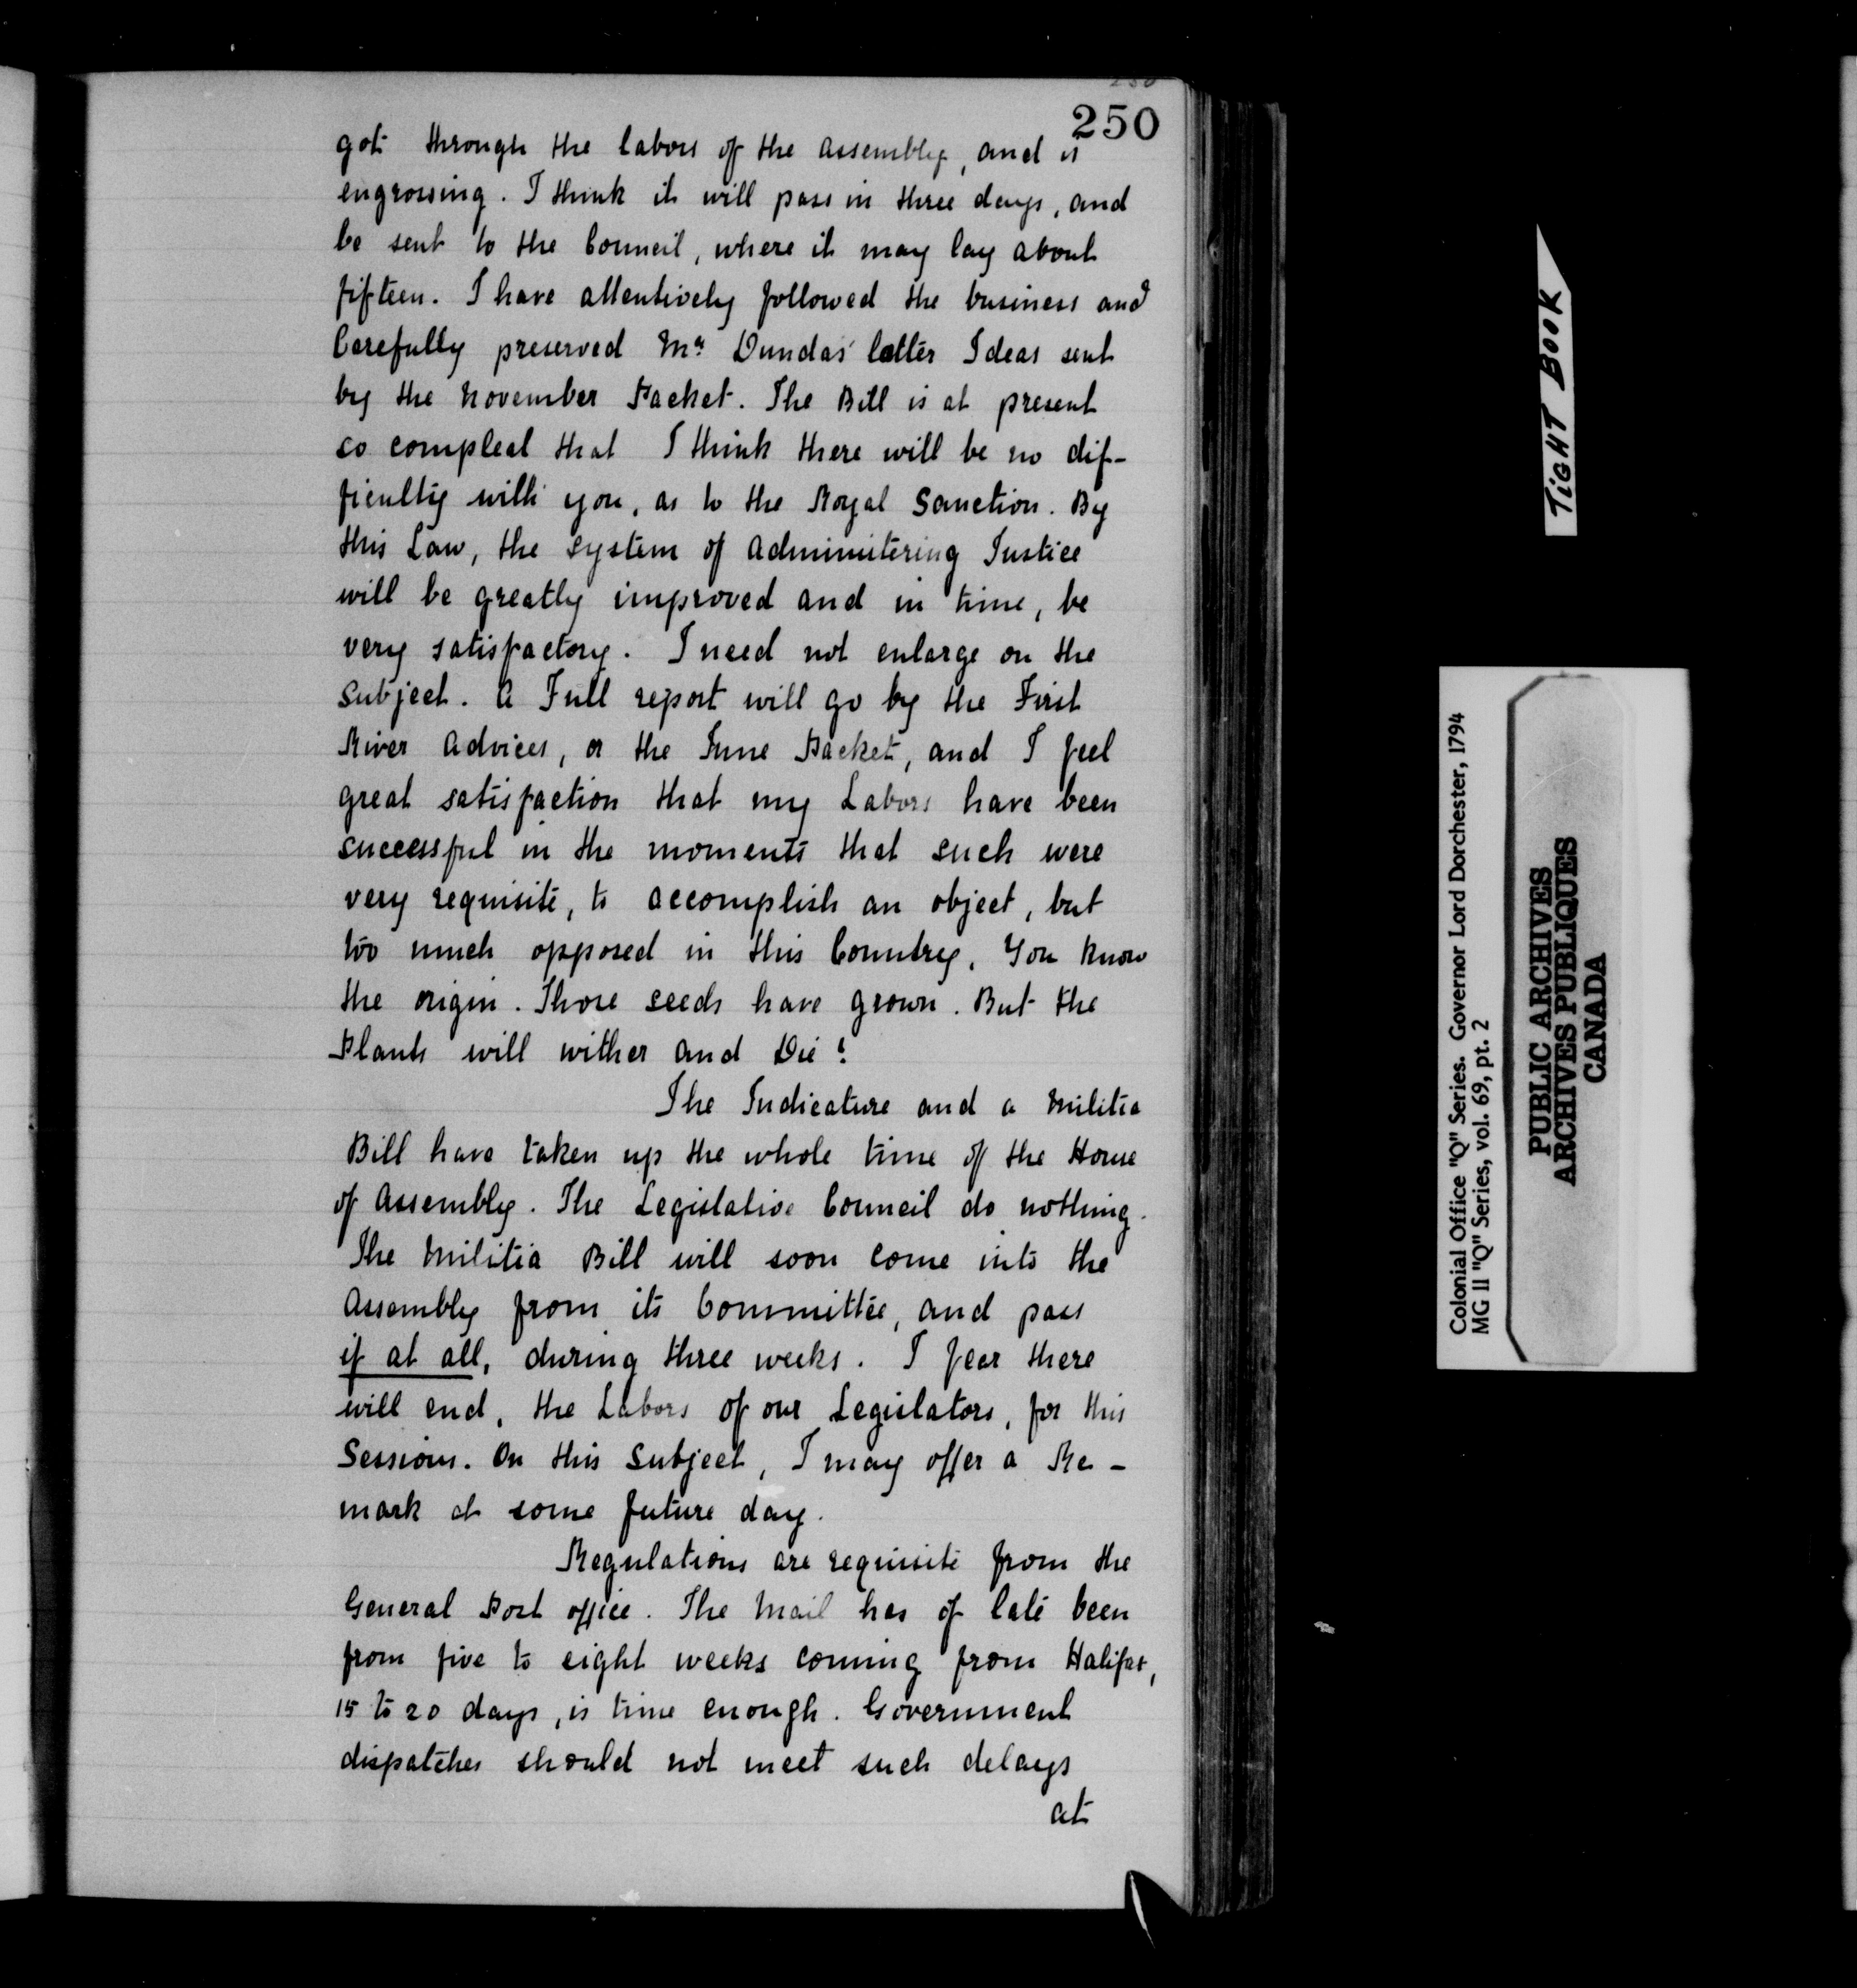 250
250
got through the labors of the Assembly, and is
engrossing. I think it will pass in three days, and
be sent to the Council, where it may lay about
fifteen. I have attentively followed the business and
Carefully preserved Mr Dundas' latter Ideas sent
by the November Packet. The Bill is at present
so compleat that I think there will be no dif-
ficulty with you, as to the Royal Sanction. By
this Law, the system of Administering Justice
will be greatly improved and in time, be
very satisfactory. I need not enlarge on the
Subject. A Full report will go by the First
River Advices, or the June Packet, and I feel
great satisfaction that my Labors have been
successful in the moments that such were
very requisite, to accomplish an object, but
too much opposed in this Country. You know
the origin. Those seeds have grown. But the
Plants will wither and Die!
The Judicature and a Militia
Bill have taken up the whole time of the House
of Assembly. The Legislative Council do nothing.
The Militia Bill will soon come into the
Assembly from its Committee, and pass
if at all, during three weeks. I fear there
will end, the Labors of our Legislators, for this
Session. On this Subject, I may offer a Re-
mark at some future day.
Regulations are requisite from the
General Post office. The Mail has of late been
from five to eight weeks coming from Halifax,
15 to 20 days, is time enough. Government
dispatches should not meet such delays
at
TIGHT BOOK
Colonial Office "Q" Series. Governor Lord Dorchester, 1794
MG 11 "Q" Series, vol. 69, pt. 2
PUBLIC ARCHIVES
ARCHIVES PUBLIQUES
CANADA